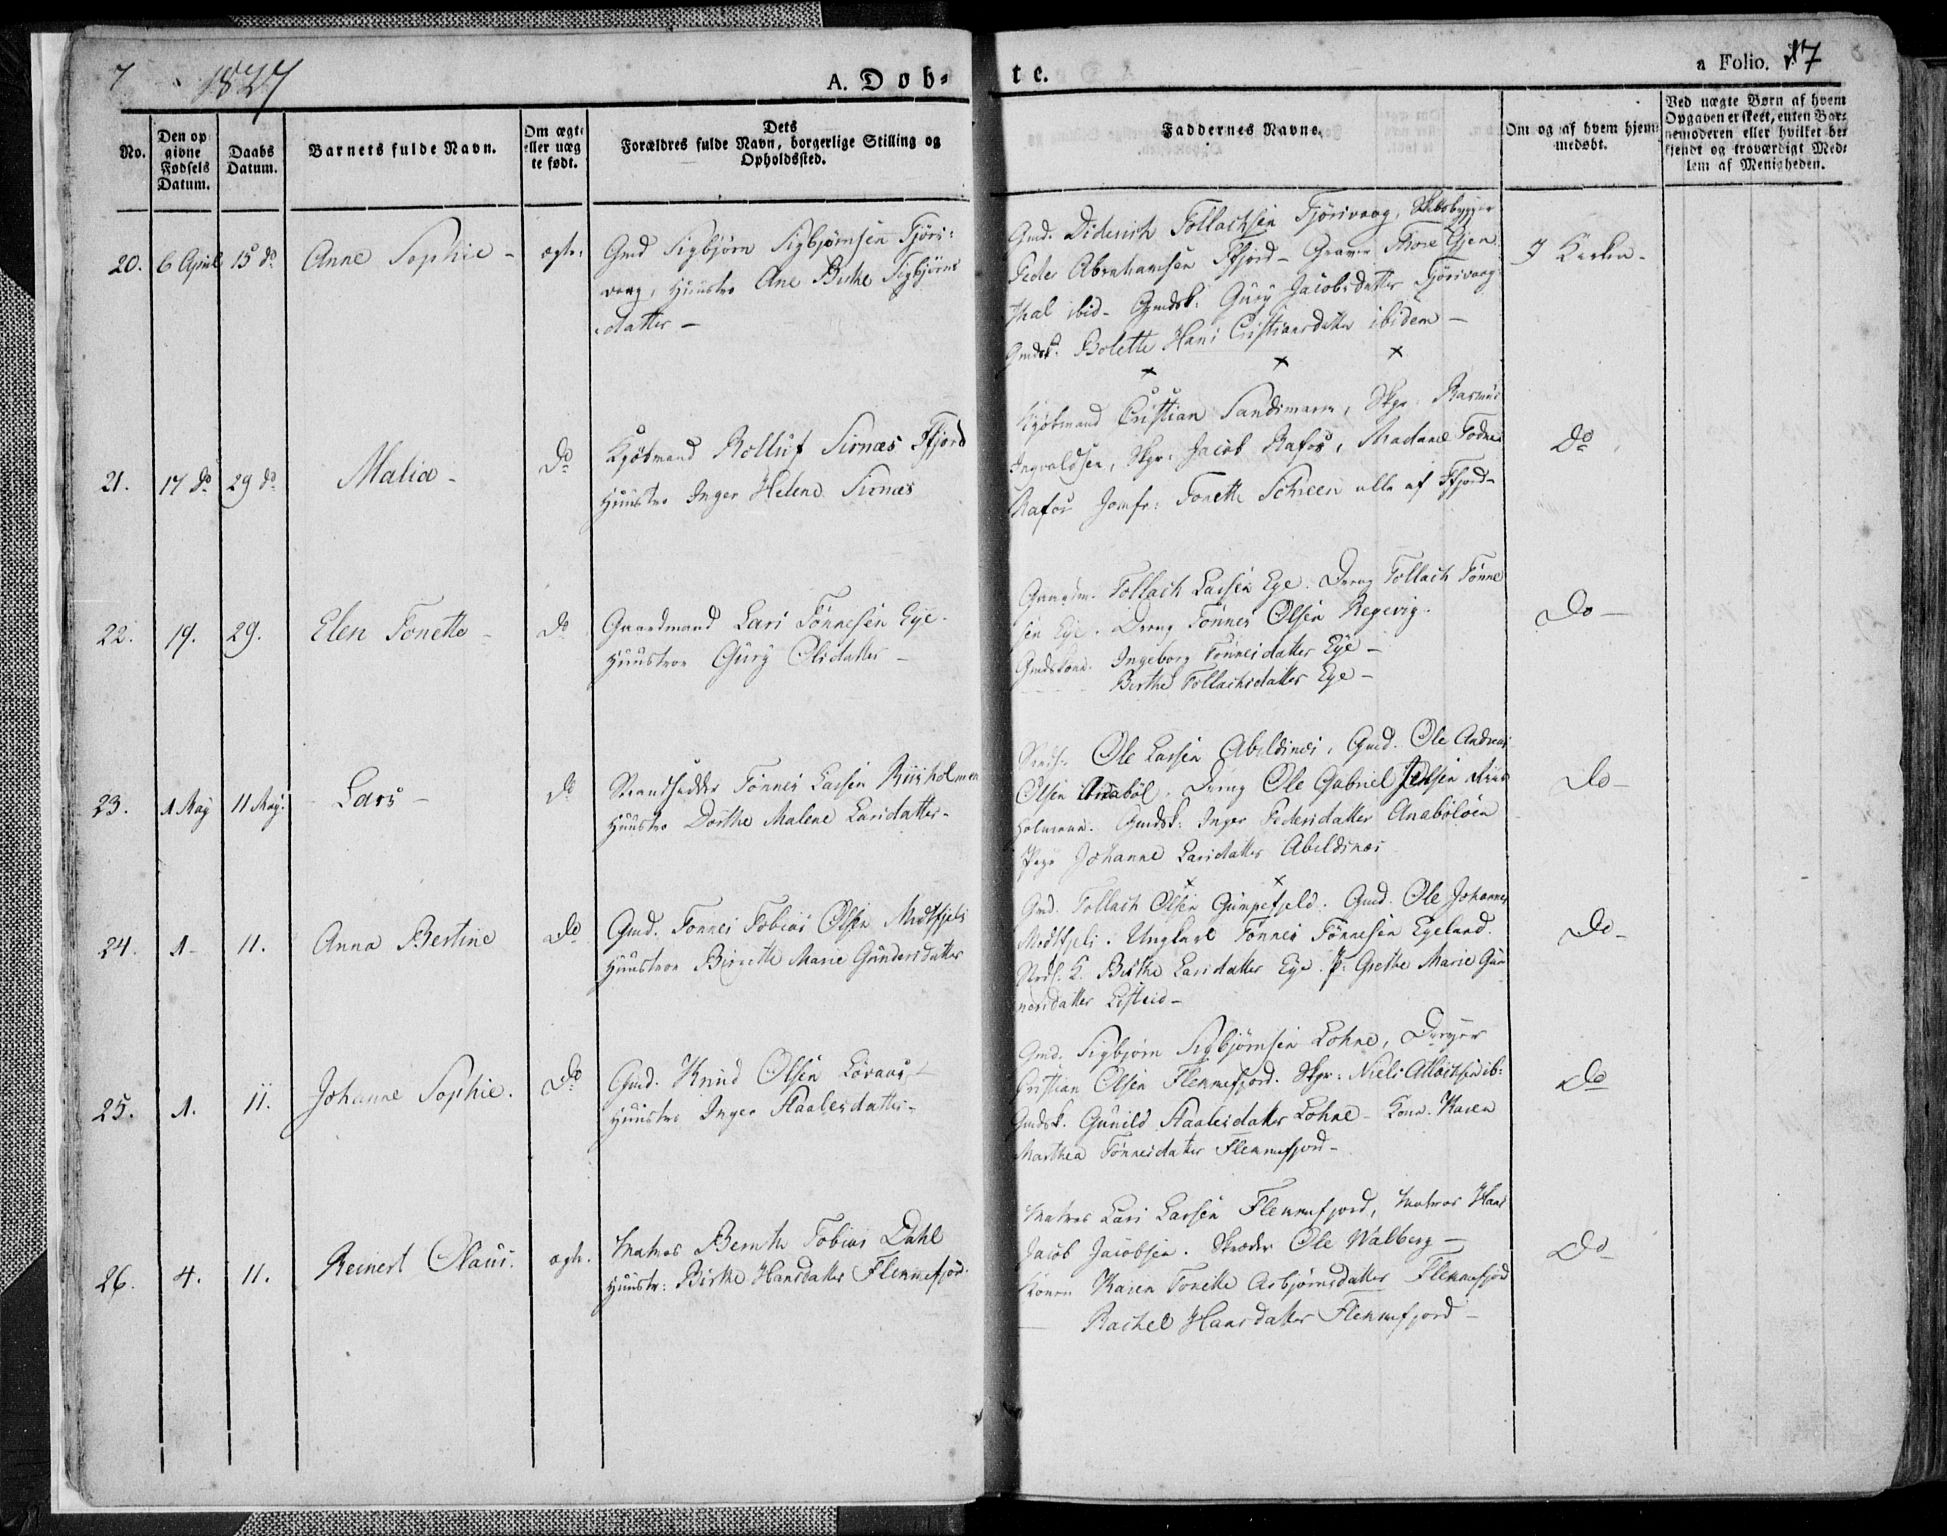 7 1827 A. Døb-
te. a Folio. 17
No.
Den op
givne
Fødsels
Datum.
Daabs
Datum.
Barnets fulde Navn.
Om ægte
eller uæg
te født.
Dets
Forældres fulde Navn, borgerlige Stilling og
Opholdssted.
Faddernes Navne.
Om og af hvem hjem
medøbt.
Ved uægte Børn af hvem
Opgaven er skeet, enten Bar-
nemoderen eller hvilket be-
kjendt og troværdigt Med-
lem af Menigheden.
20. 6 April 15 do Anne Sophie - ægte:
Gmd Sigbjørn Sigbjørnsen Fjøri-
vaag, Huustro Ane Birthe Sigbjørns
datter -
Gmd. Diderich Tollachsen Fjørivaag, Skibsbygger
Peder Abrahamsen Ffjord - Graver Thore Gjen
thal ibid - Gmdsk: Gury Jacobsdatter Fjørivaag
Gmdsk. Bolette Hans Cristiansdatter ibidem -
I Kirken -
21. 17 do 29 do Malia - Do
Kjøbmand Rolluf Sirnæs Ffjord
Huustro Inger Helene Sirnæs
Kjøbmand Cristian Sandsmarn, Skpr: Rasmus
Ingvaldsen, Skpr: Jacob Rafos, Madame Todne
Rafos Jomfr: Tonette Schreen alle af Ffjord -
Do
22. 19. 29. Elen Tonette - Do
Gaardmand Lars Tønnesen Eye.
Huustroe Gury Olsdatter -
Gaardm. Tollach Larsen Eye. Dreng Tollach Tønne
sen Eye. Dreng Tønnes Olsen Regevig.
Gmdskone. Ingeborg Tønnesdatter Eye -
Birthe Tollachsdatter Eye -
Do -
23. 1 May 11 May. Lars - Do
Strandsidder Tønnes Larsen Riisholmen
Huustro Dorthe Malene Larsdatter -
Ole Larsen Abildsnes, Gmd. Ole Andreas
Olsen Anabøl, Dreng Ole Gabriel Olsen Riis
holmene. Gmdsk: Inger Pedersdatter Anabøløen
Pige Johanne Larsdatter Abildsnes
Do -
24. 1 - 11. Anna Bertine Do
Gmd. Tønnes Tobias Olsen Midtfjeld
Huustroe Birgitte Marie Gundersdatter
Gmd. Tollach Olsen Gumpefjeld. Gmd. Ole Johannes
Midtfjeld. Ungkarl Tønnes Tønnesen Egeland.
K. Birthe Larsdatter Eye. P: Grethe Marie Gun
nersdatter Listeid -
Do -
25. 1. 11. Johanne Sophie. Do
Gmd. Knud Olsen Løvaas -
Huustro Inger Staalesdatter -
Gmd. Sigbjørn Sigbjørnsen Lohne, Dreyer
Cristian Olsen Flekkefjord. Skpr: Niels ib:
Gmdsk. Gunild Staalesdatter Lohne - Kone. Karen
Marthea Tønnesdatter Flekkefjord -
Do
26. 4. 11. Reinert Olaus. ægte.
Matros Bernth Tobias Dahl
Huustr: Birthe Hansdatter Flekkefjord.
Matros Lars Larsen Flekkefjord, Matros Hans
Jacob Jacobsen. Skræder Ole Walberg -
Konen Karen Tonette Asbjørnsdatter Flekkefjord
Rachel Hansdatter Flekkefjord -
Do